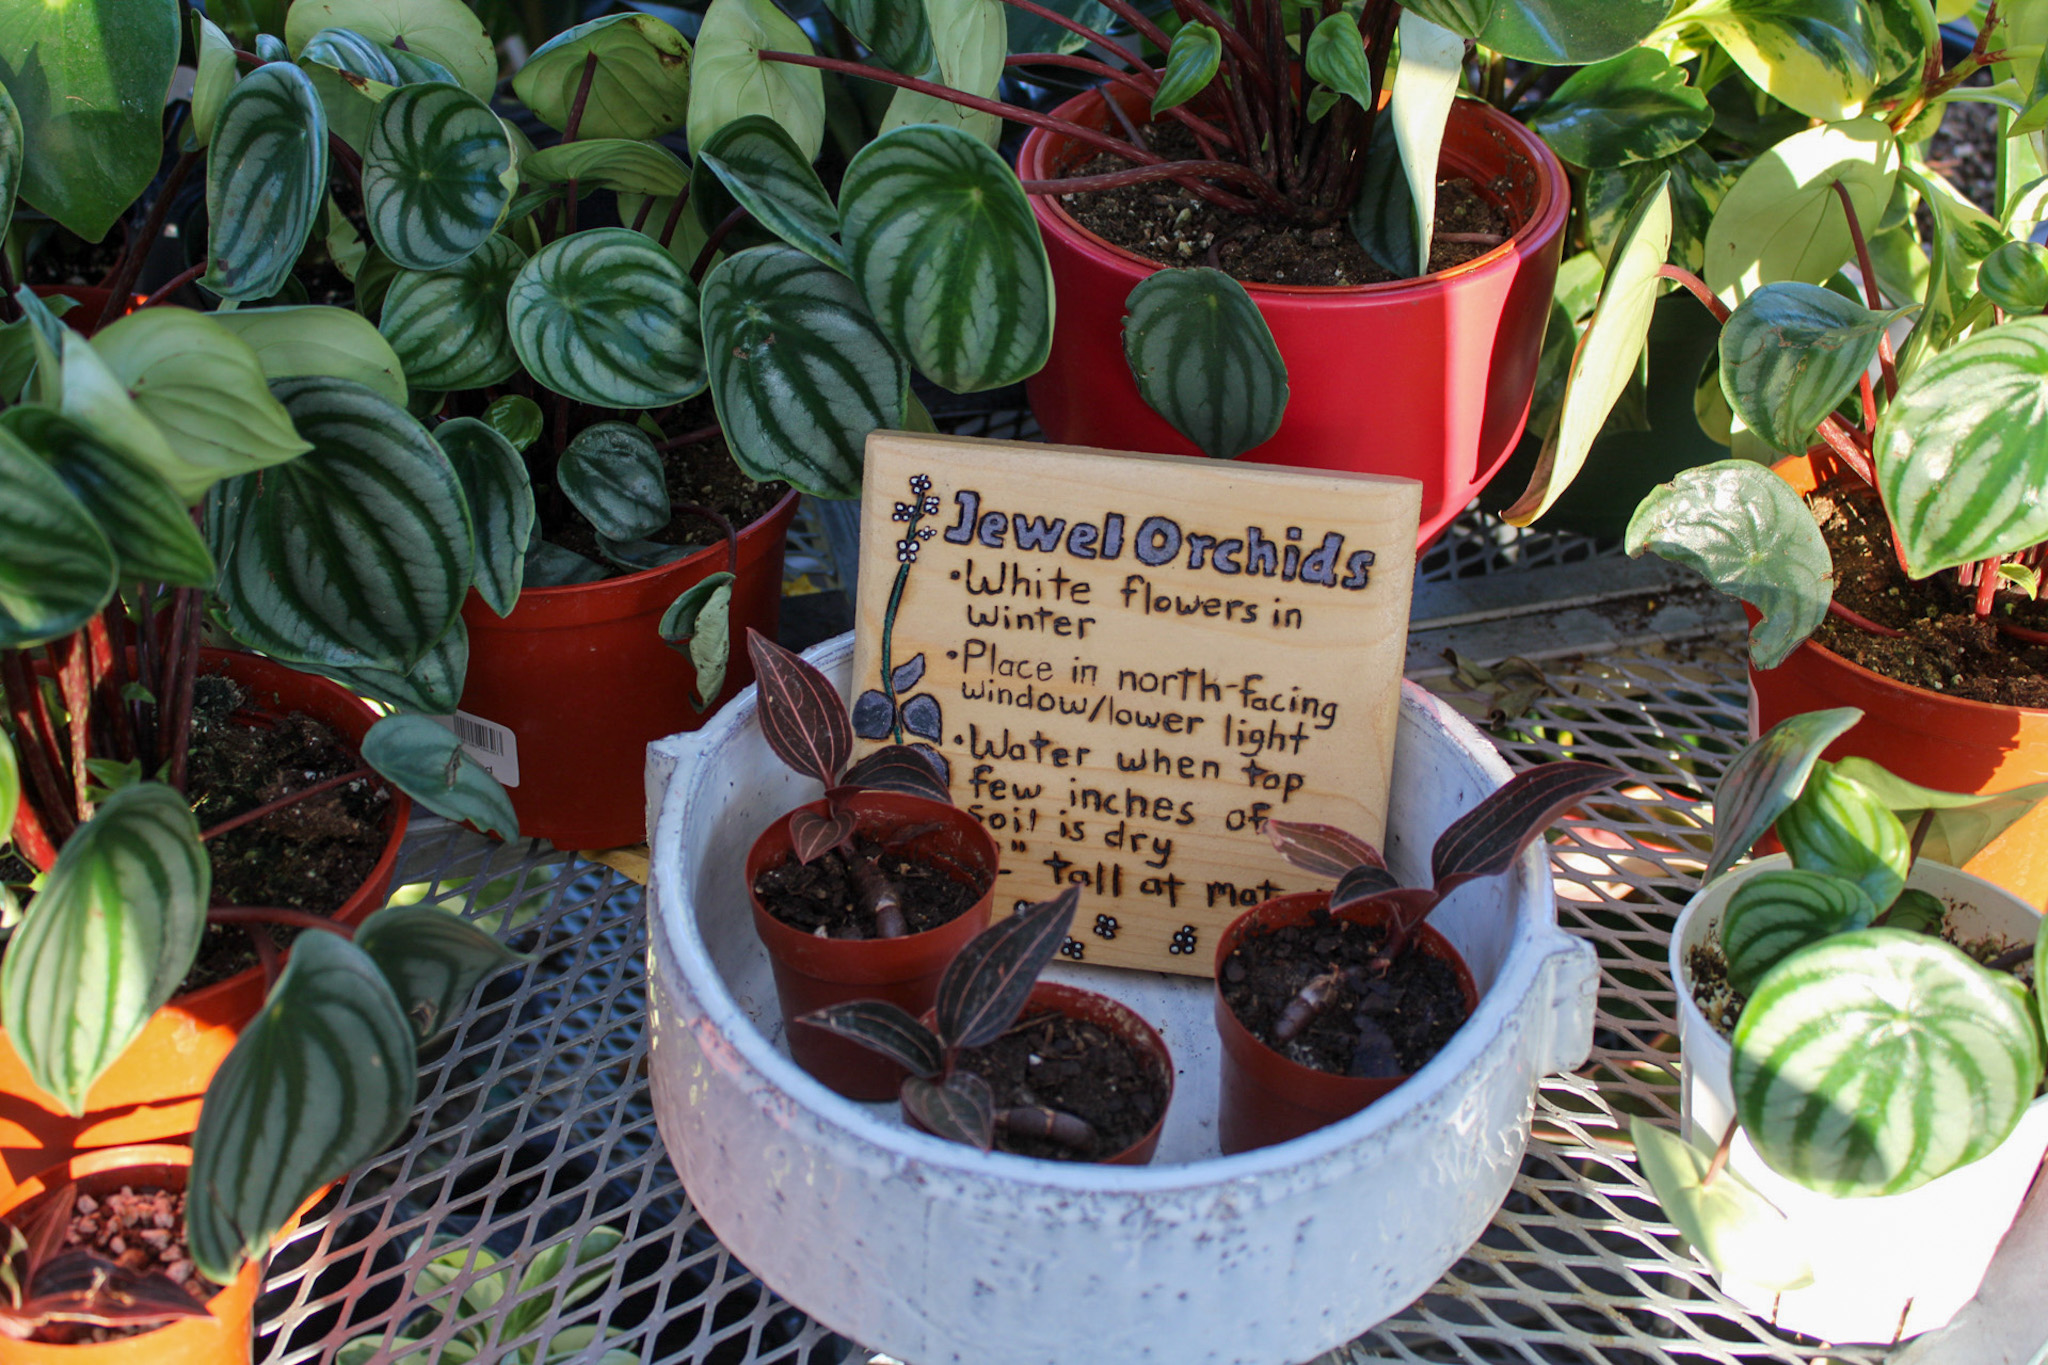 Jewel Orchids
•White flowers in
winter
•Place in north-facing
window/lower light
•Water when top
few inches of
soil is dry
" tall at mat